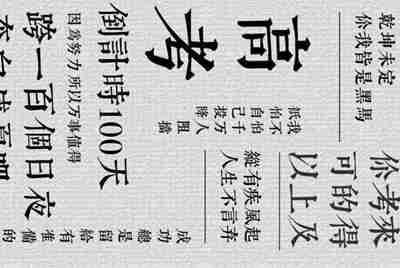 高考
倒計時100天
跨一百個日夜
因為努力所以万事值得
乾坤未定
你我皆是黑馬
我不怕千万人阻擋
祇怕自己投降
縱有疾風起
人生不言弃
你可以
考的上
來得及
成功總是留給有准備的